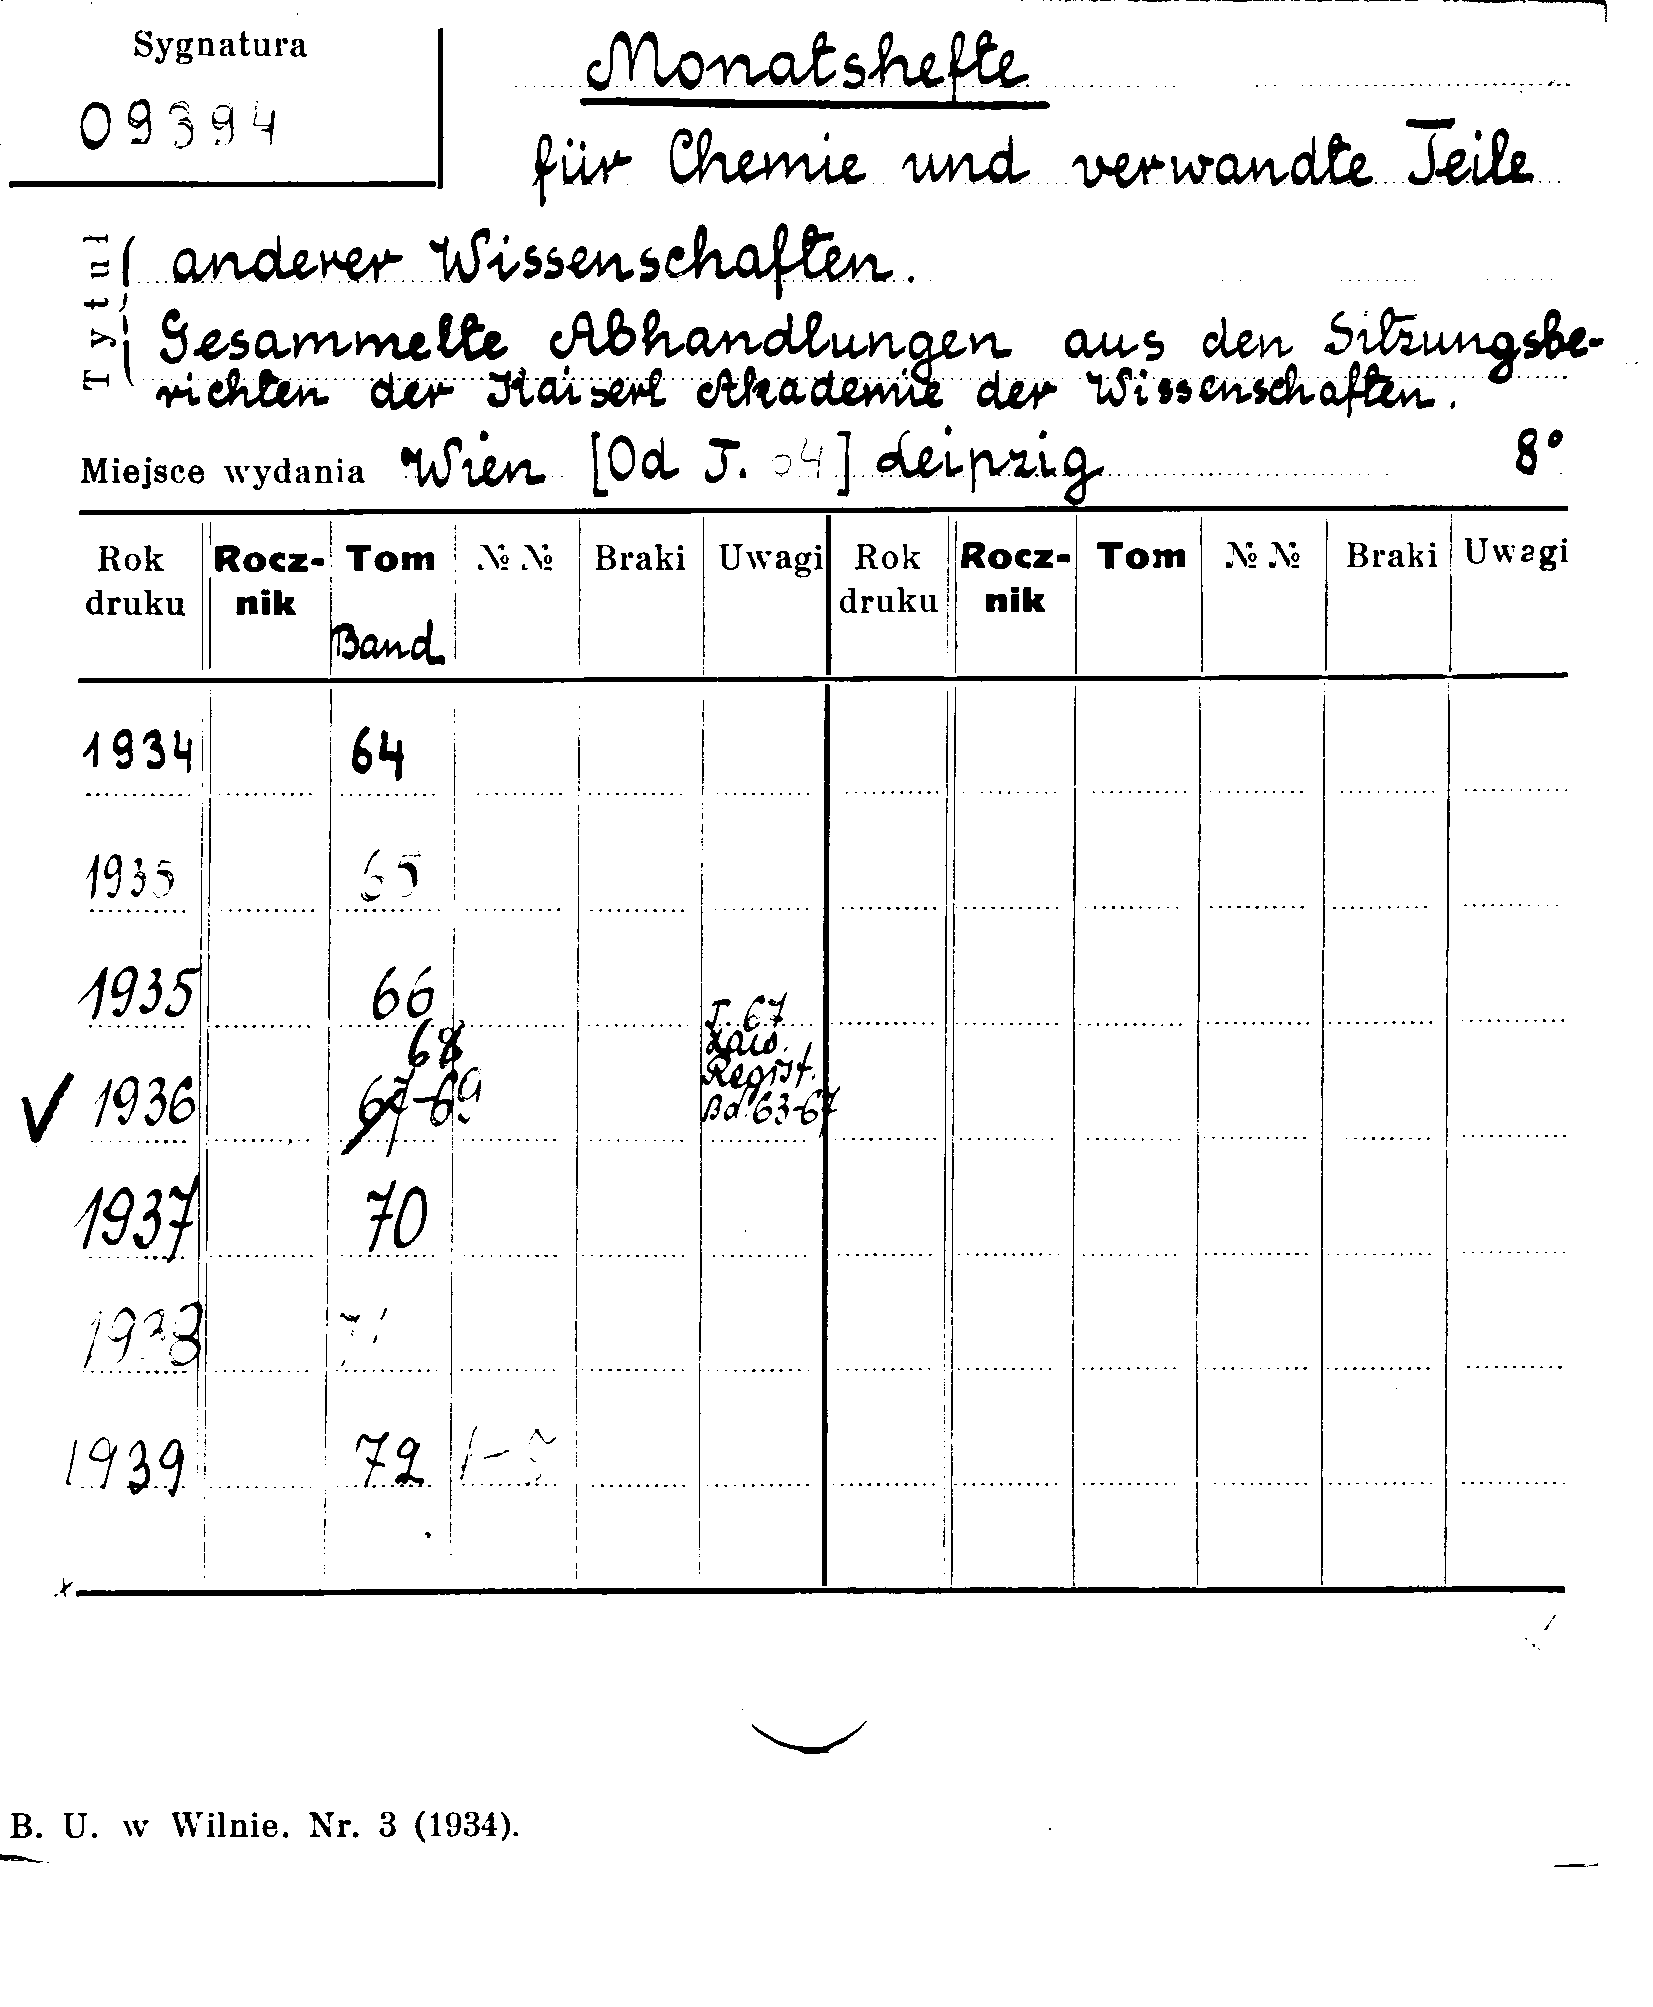 Sygnatura
09394
Monatshefte
für Chemie und verwandte Teile
Tytuł
anderer Wissenschaften.
Gesammelte Abhandlungen aus den Sitzungsbe-
richten der Kaiserl Akademie der Wissenschaften.
Miejsce wydania Wien [Od T. 04] Leipzig 8°
Rok druku Rocz-nik Tom № № Braki Uwagi Rok druku Rocz-nik Tom № № Braki Uwagi
Band
1934 64
1935 65
1935 66
68
T. 67
Regist.
V 1936 67-69 Bd. 63-67
1937 70
1938 71
1939 72
B. U. w Wilnie. Nr. 3 (1934).